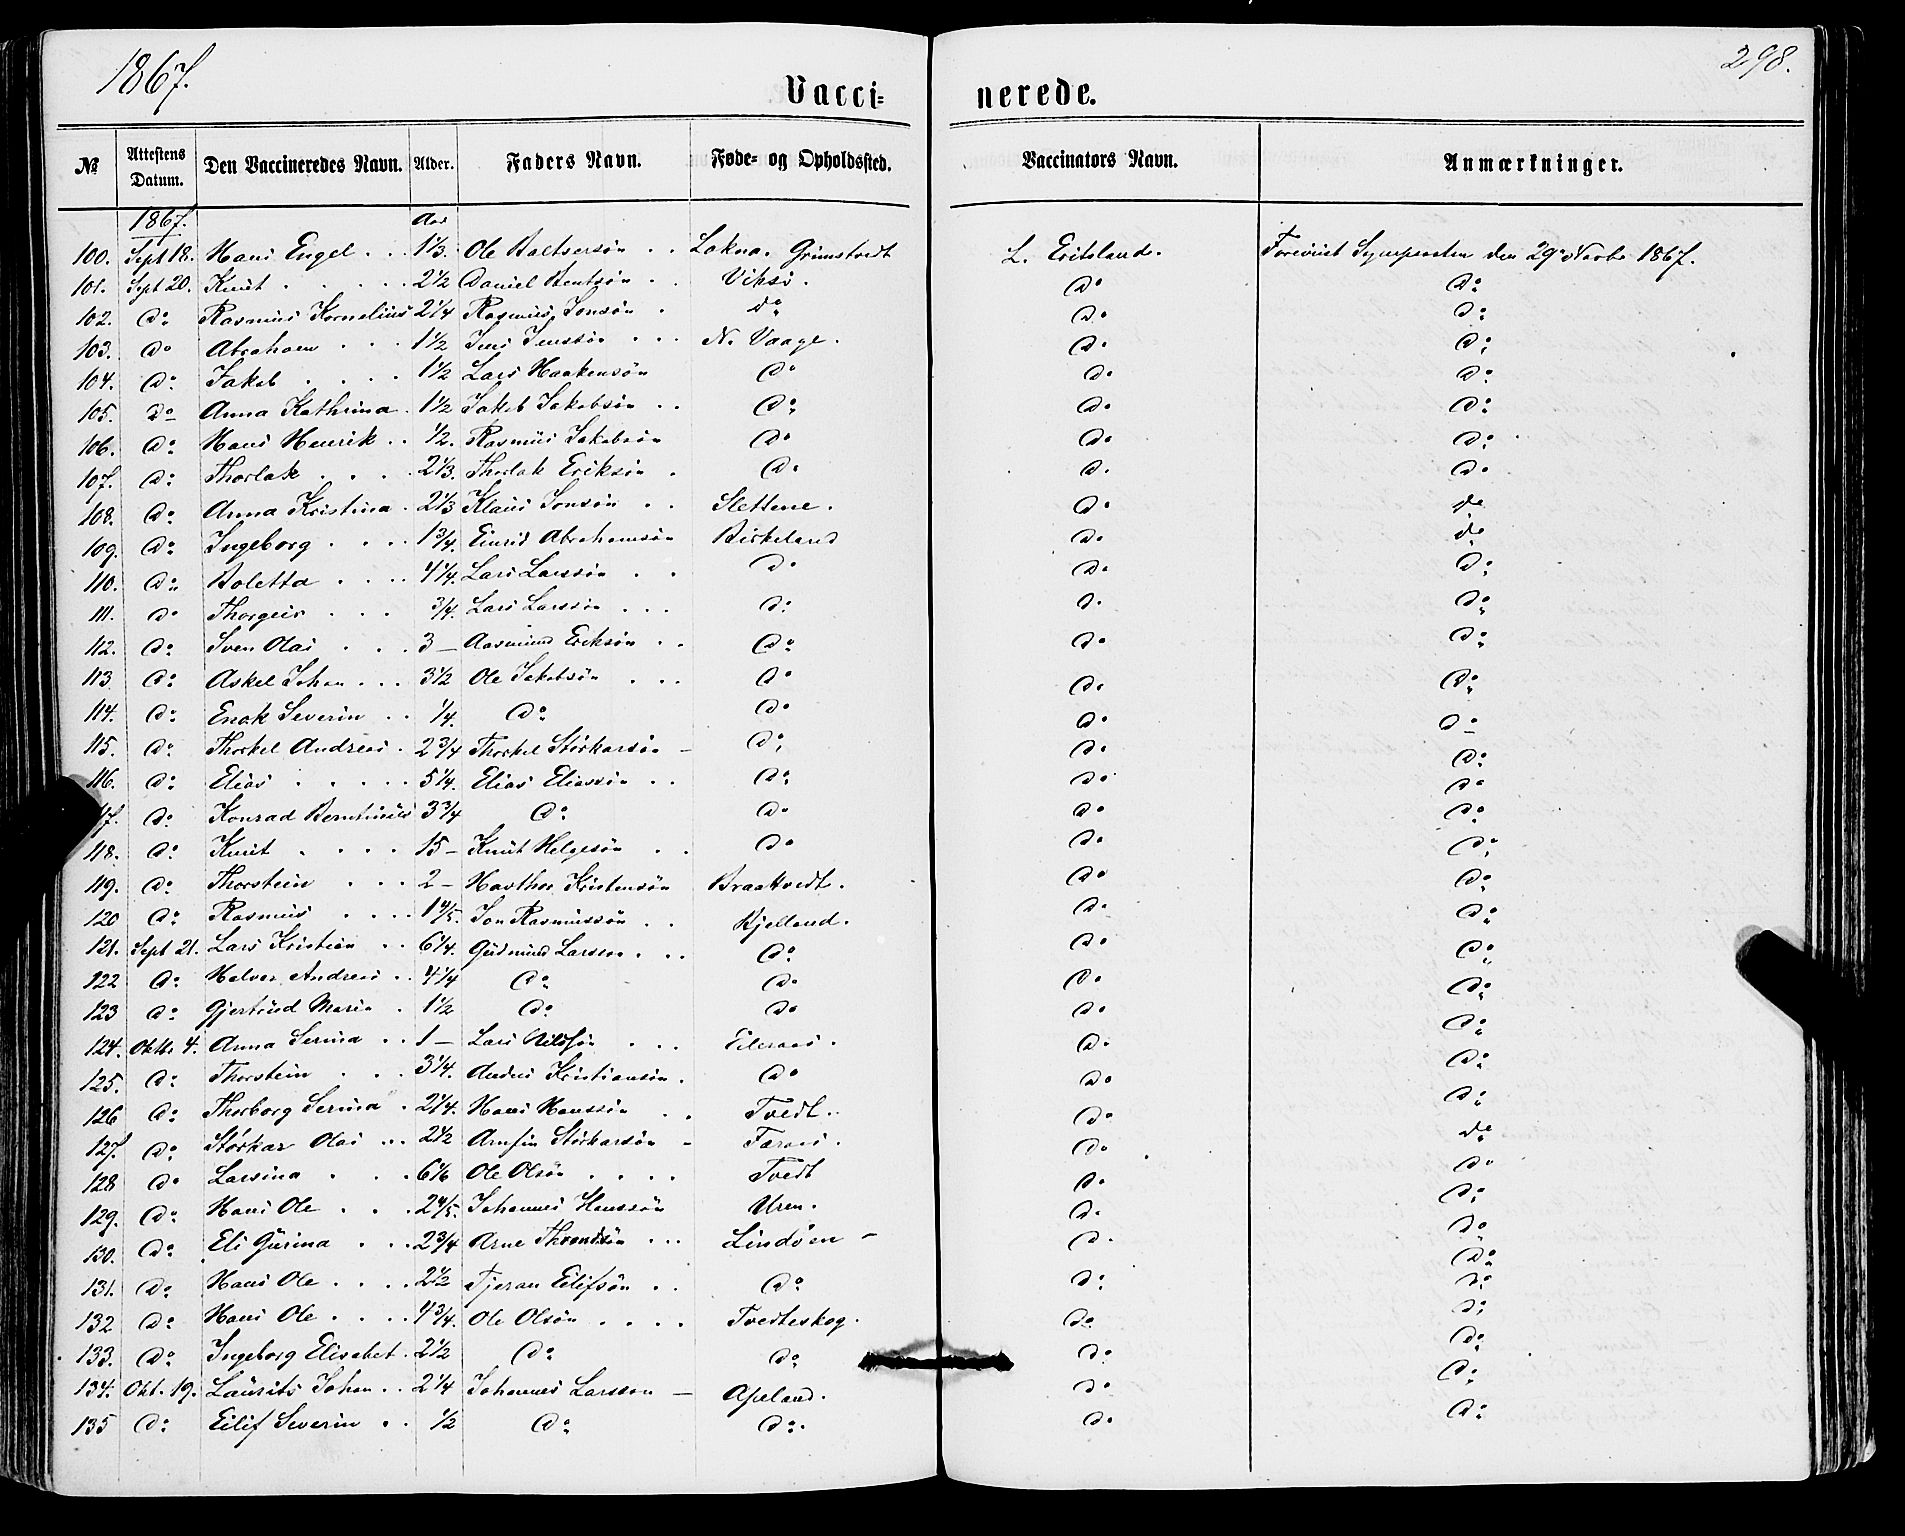 1867. 298.
Vacci= nerede.
№ Attestens Datum. Den Vaccineredes Navn. Alder. Faders Navn. Føde- og Opholdssted. Vaccinators Navn. Anmærkninger.
1867. Aar
100. Sept 18. Hans Engel . . 1⅓. Ole Baltsersön . . Lokna. Grimstvedt L. Eritsland. Forevist Sognepresten den 29de Novbr 1867.
101. Sept 20. Knut . . . . . 2½ Daniel Bentsön . . Viksö. do do
102. do Rasmus Kornelius 2¼ Rasmus Jonsön . do do do
103. do Abraham . . . 1½ Jens Jenssön . . . N. Vaage. do do
104. do Jakob . . . . 1½ Lars Haakensön do do do
105. do Anna Kathrina . 1½ Jakob Jakobsön . . do do do
106. do Hans Henrik . . ½. Rasmus Jakobsön do do do
107. do Thorlak . . . . 2⅓. Thorlak Eriksön . do do do
108. do Anna Kristina . 2⅓ Klaus Jonsön . . Slettene. do do
109. do Ingeborg . . . . 1¾. Einrid Abrahamsön Birkeland do do
110. do Boletta . . . . 4¼. Lars Larssön . . do do do
111. do Thorgeir . . . ¾. Lars Larssön . . . do do do
112. do Sven Olai . . . 3 — Aasmund Eriksön . . do do do
113 do Askel Johan . . . 3½ Ole Jakobsön . . . do do do
114. do Enok Severin . . ¼. do do do do
115. do Thorkel Andreas . 2¾ Thorkel Störkarsön — do do do
116. do Elias . . . . . 5¼. Elias Eliassön . . do do do
117. do Konrad Berntinius 3¾ do do do do
118. do Knut . . . . 15 — Knut Helgesön . . do do do
119. do Thorstein . . . 2 — Havthor Kristensön Braatvedt. do do
120 do Rasmus . . . . 1⅘. Jon Rasmussön . . Kjelland. do do
121. Sept 21. Lars Kristian . . 6¼. Gudmund Larsson . . . do do do
122 do Halvor Andreas . . 4¼ do do do do
123 do Gjertrud Maria . 1½ do do do do
124. Oktbr 4. Anna Serina . . 1 — Lars Nilssön . . . Eileraas. do do
125. do Thorstein . . . 3¼. Anders Kristiansön . do do do
126 do Thorborg Serina . 2¼. Hans Hanssön . . Tvedt. do do
127. do Störkar Olai . . . 2½ Arnfin Störkarsön – Faraas. do do
128 do Larsina . . . 6⅙ Ole Olsön . . . . Tvedt do do
129. do Hans Ole . . . 2⅘. Johannes Hanssön Uren. do do
130. do Eli Gurina . . . 2¾ Arne Throndsön . . . Lindöen – do do
131. do Hans Ole . . . . 2½ Tjeran Eilifsön . . do do do
132 do Hans Ole . . . . 4¾. Ole Olsön . . . . Tvedteskog. do do
133. do Ingeborg Elisabet . 2½ do do do do
134. Okt. 19. Laurits Johan . . 2¼ Johannes Larsson — Apeland. do do
135 do Eilif Severin . . ½ do do do do